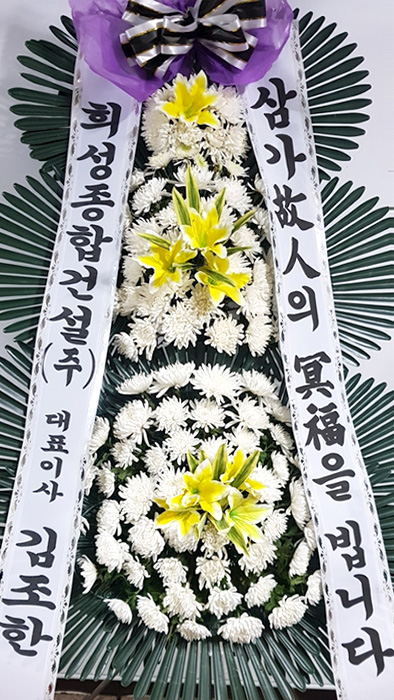 삼가故人의 冥福을 빕니다
희성종합건설(주) 대표이사 김조한